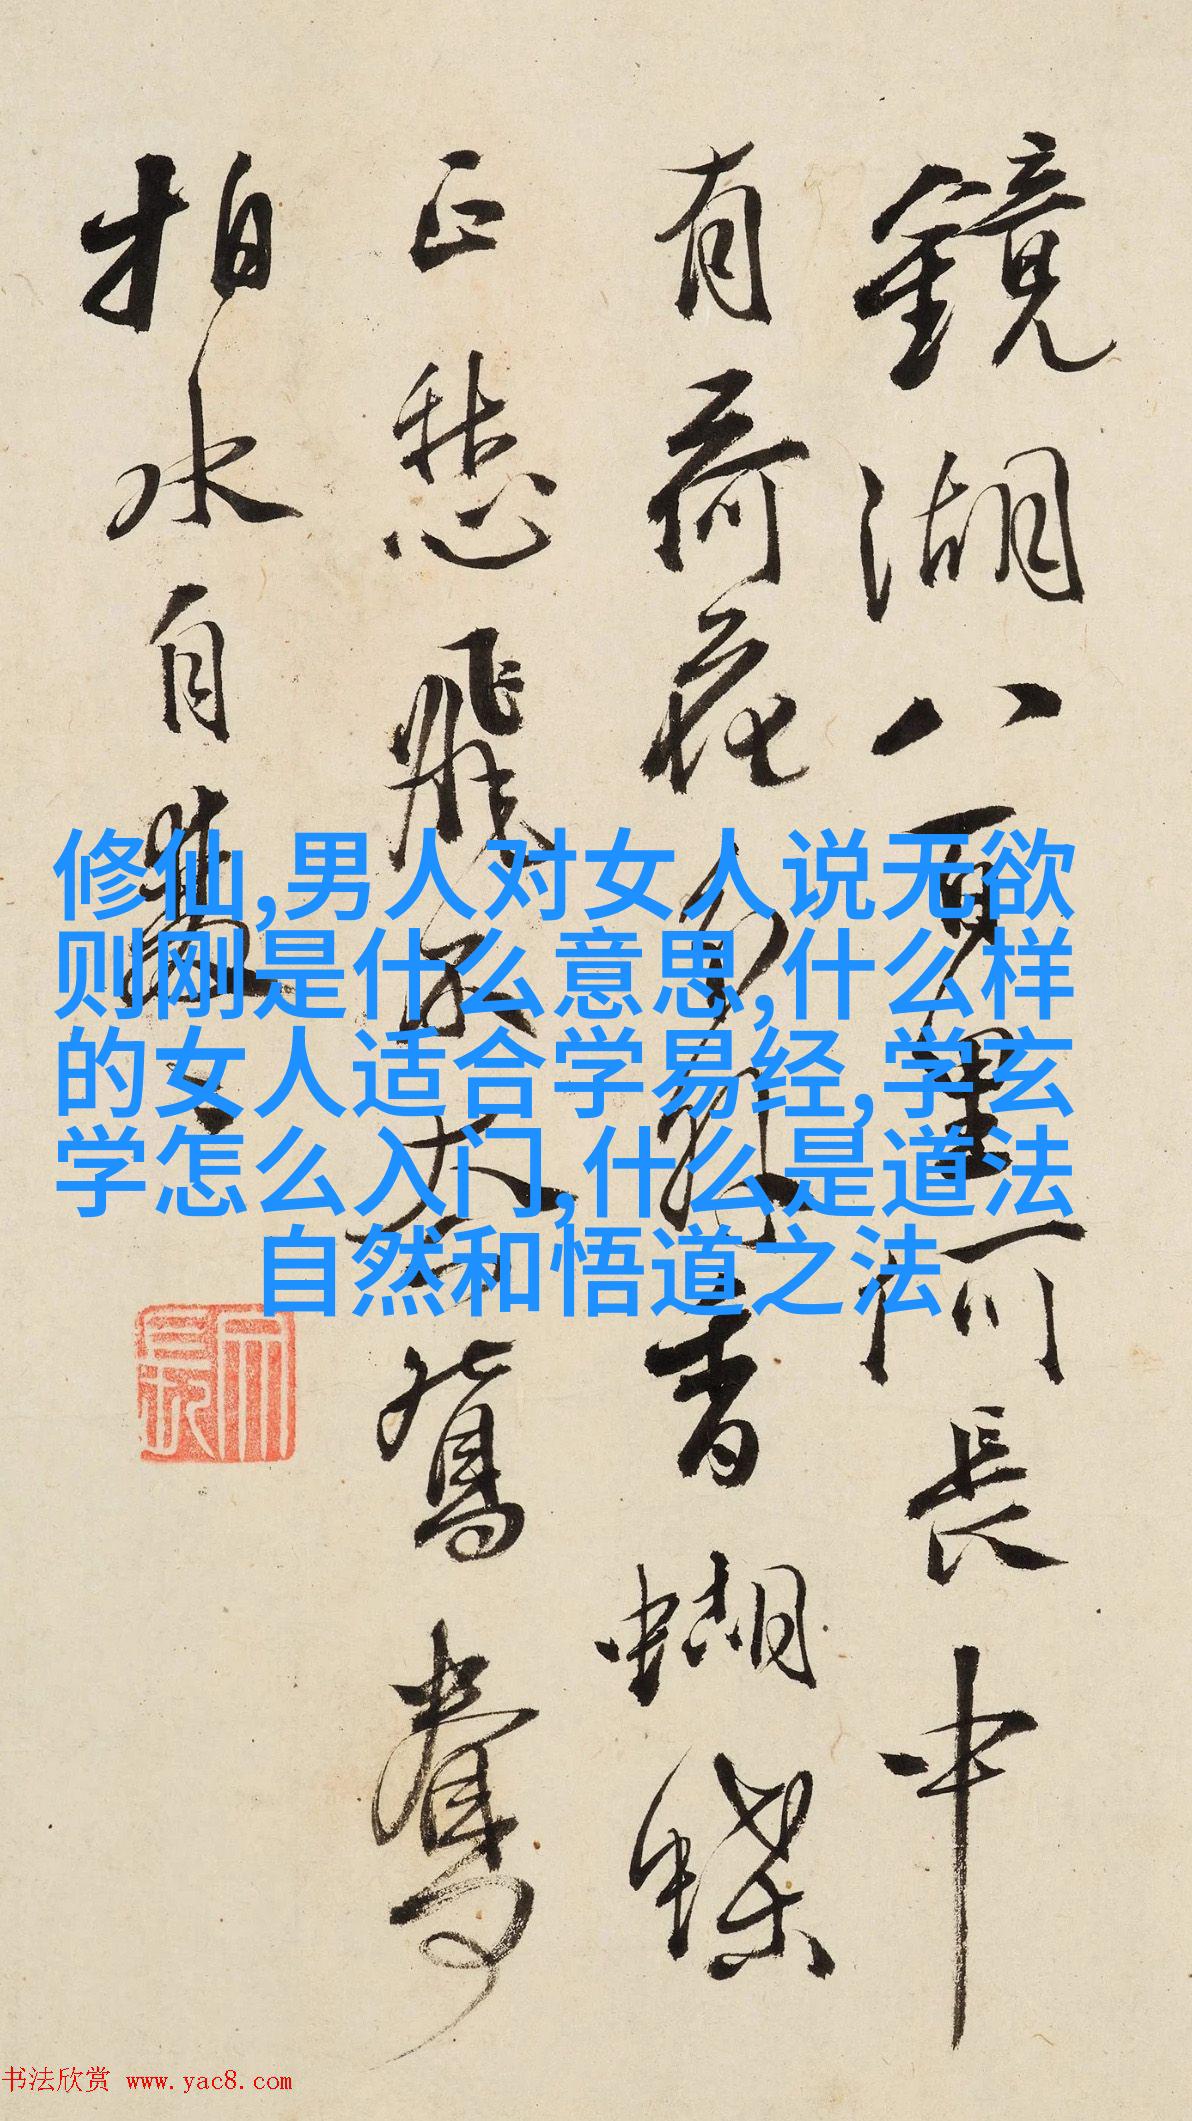 鏡湖八百里何長中
有荷花分外香蝴蝶
正愁飛不大鴛鴦
拍水自雙
修仙,男人对女人说无欲
则刚是什么意思,什么样
的女人适合学易经,学玄
学怎么入门,什么是道法
自然和悟道之法
书法欣赏 www.yac8.com